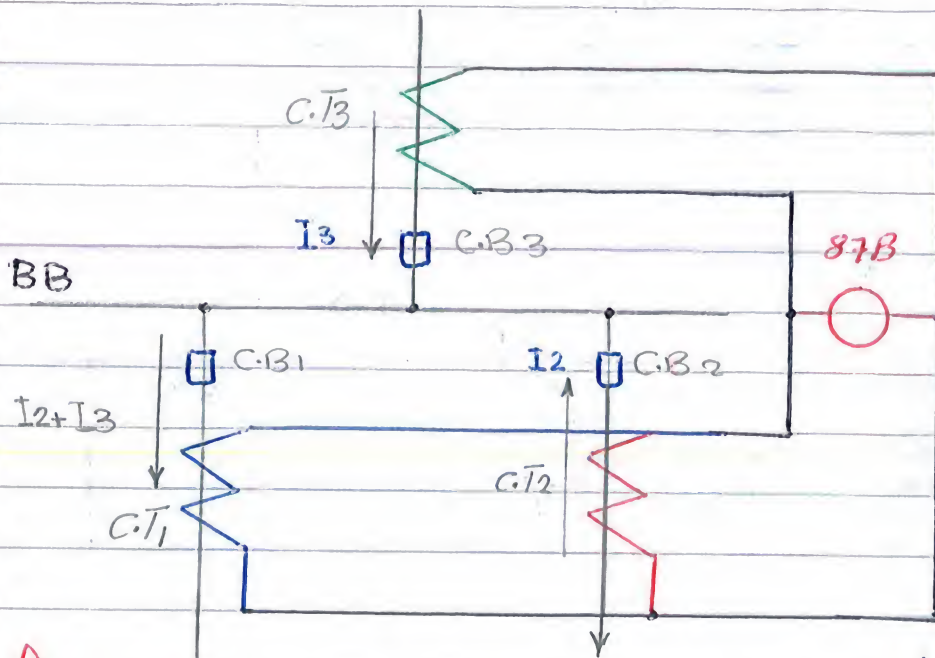 C.T3
I3
C.B3
87B
BB
C.B1
I2
C.B2
I2+I3
C.T2
C.T1